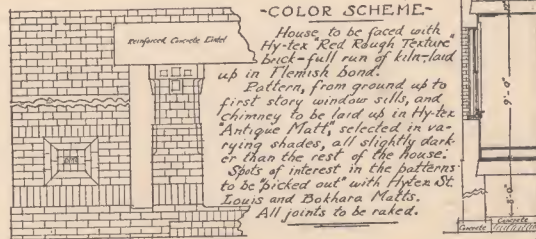 -COLOR SCHEME-
House to be faced with
Hy-tex "Red Rough Texture"
brick-full run of kiln-laid
up in Flemish bond.
Pattern, from ground up to
first story window sills, and
chimney to be laid up in Hy-tex
"Antique Matt", selected in va-
rying shades, all slightly dark-
er than the rest of the house.
Spots of interest in the patterns
to be "picked out" with Hytex St.
Louis and Bokhara Matts.
All joints to be raked.
Reinforced Concrete Lintel
9'-0"
Concrete
Concrete